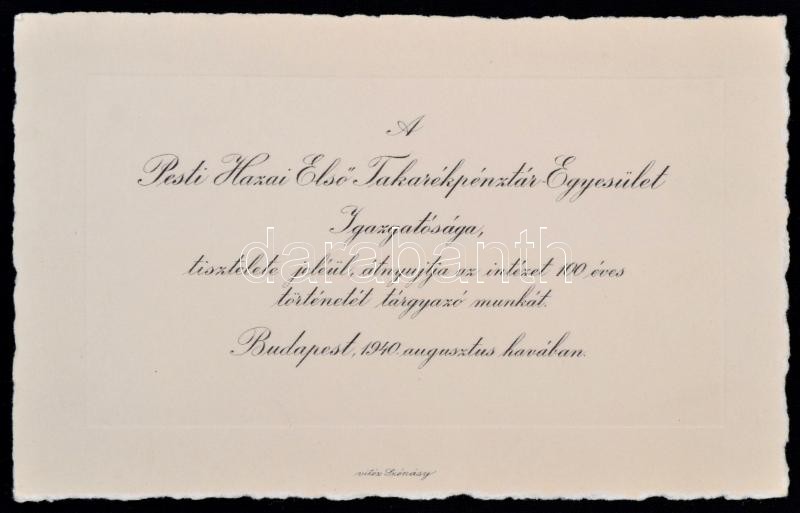 A
Pesti Hazai Első Takarékpénztár-Egyesület
Igazgatósága,
darabanth
tisztelete jeléül, átnyujtja az intézet 100 éves
történetét tárgyazó munkát.
Budapest, 1940. augusztus havában.
vitéz Szénásy